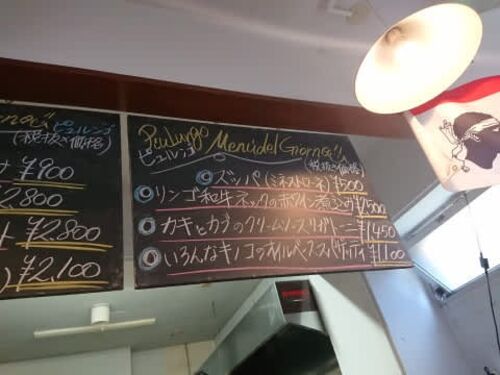 (税抜き価格)
ピュルンゴ
¥900
¥2,800
¥2,800
¥2,100
Pulungo Menu del Giorno"
ピュルンゴ
(税抜価格)
ズッパ(ミネストローネ) ¥500
リンゴ和牛ネックの赤ワイン煮込み ¥2,500
カキとカブのクリームソースリガトーニ ¥1,450
いろんなキノコのオイルベーススパゲッティ ¥1,100